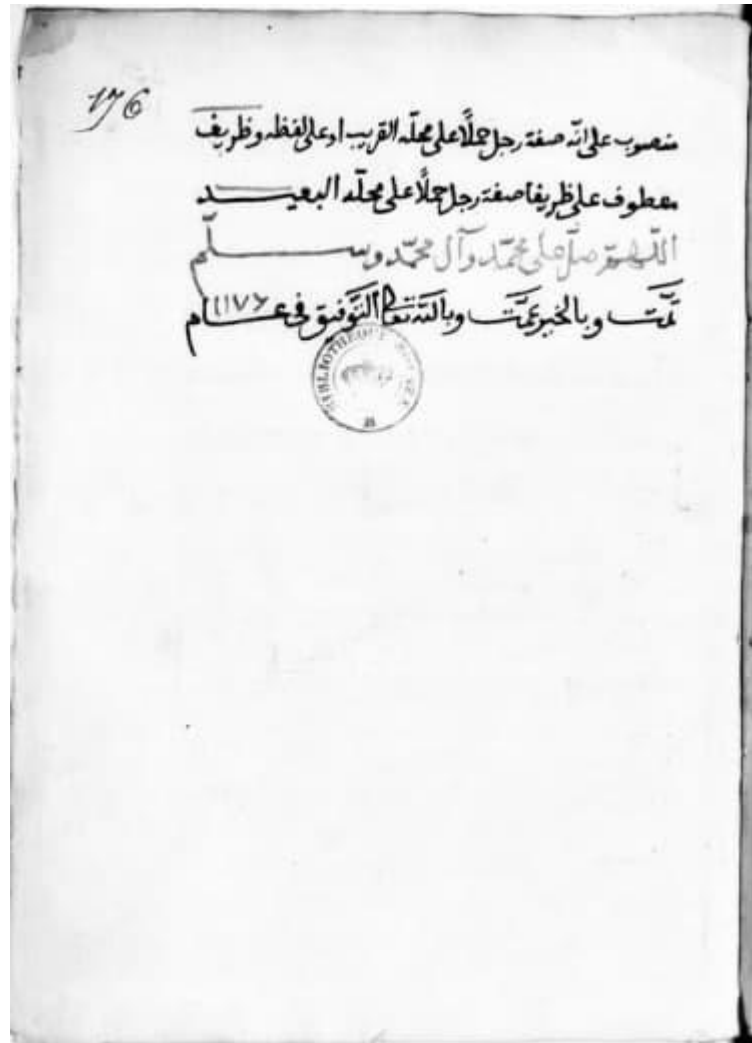 176
منصوب على انّه صفة رجل حملًا على محلّه القريب او على لفظه وظريف
معطوف على ظريفا صفة رجل حملًا على محلّه البعيد
اللّهمّ صلّ على محمّد وآل محمّد وسلّم
تمّت وبالخير عمّت وبالله تعالى التّوفيق فى عام ١١٧٦
BIBLIOTHEQUE